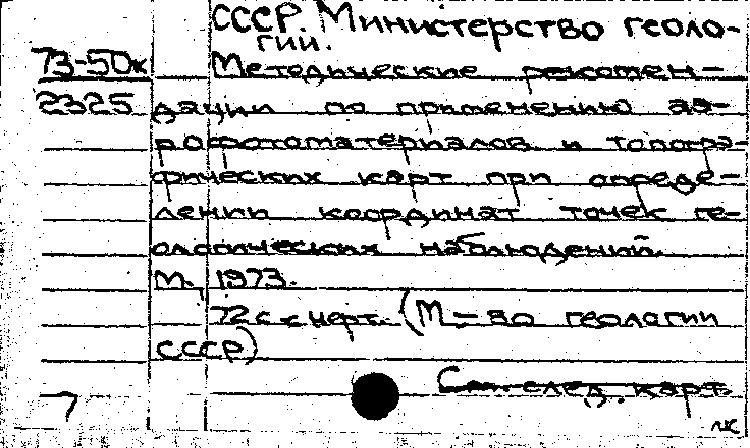 СССР. Министерство геоло-
гии.
73-50к
Методические рекомен-
2325 дации по применению аэ-
рофотоматериалов и топогра-
фических карт при опреде-
лении координат точек ге-
ологических наблюдений.
М., 1973.
72 с. с черт. (М-во геологии
СССР)
См. след. карт.
7
лк